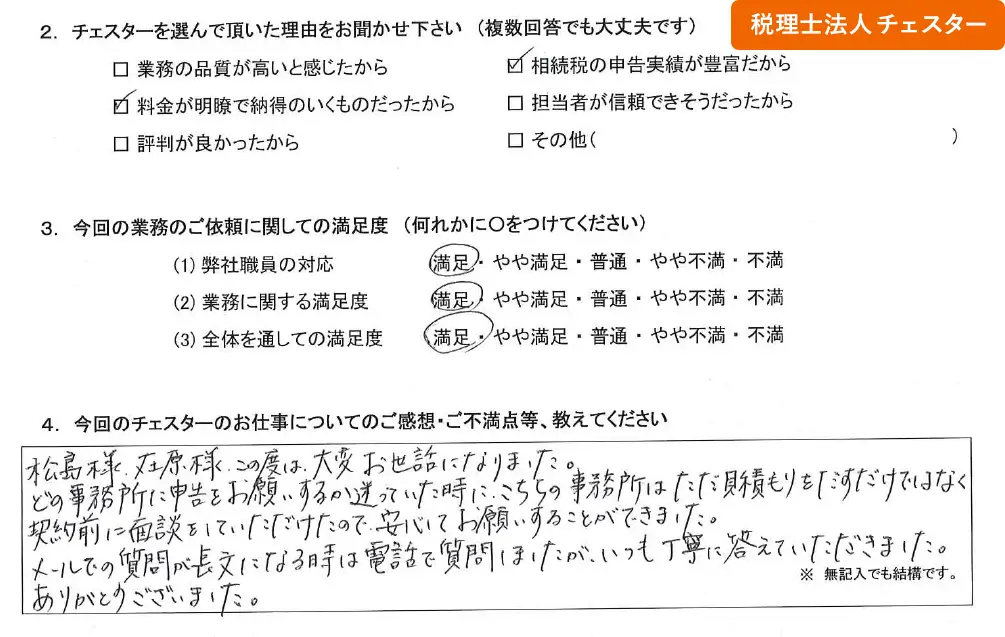 税理士法人チェスター
2. チェスターを選んで頂いた理由をお聞かせ下さい (複数回答でも大丈夫です)
□ 業務の品質が高いと感じたから ☑ 相続税の申告実績が豊富だから
☑ 料金が明瞭で納得のいくものだったから □ 担当者が信頼できそうだったから
□ 評判が良かったから □ その他( )
3. 今回の業務のご依頼に関しての満足度 (何れかに〇をつけてください)
(1) 弊社職員の対応 満足・やや満足・普通・やや不満・不満
(2) 業務に関する満足度 満足・やや満足・普通・やや不満・不満
(3) 全体を通しての満足度 満足・やや満足・普通・やや不満・不満
4. 今回のチェスターのお仕事についてのご感想・ご不満点等、教えてください
松島様、在原様、この度は、大変お世話になりました。
どの事務所に申告をお願いするか迷っていた時に、こちらの事務所はただ見積もりをだすだけではなく
契約前に面談をしていただけたので、安心してお願いすることができました。
メールでの質問が長文になる時は電話で質問しましたが、いつも丁寧に答えていただきました。
※ 無記入でも結構です。
ありがとうございました。